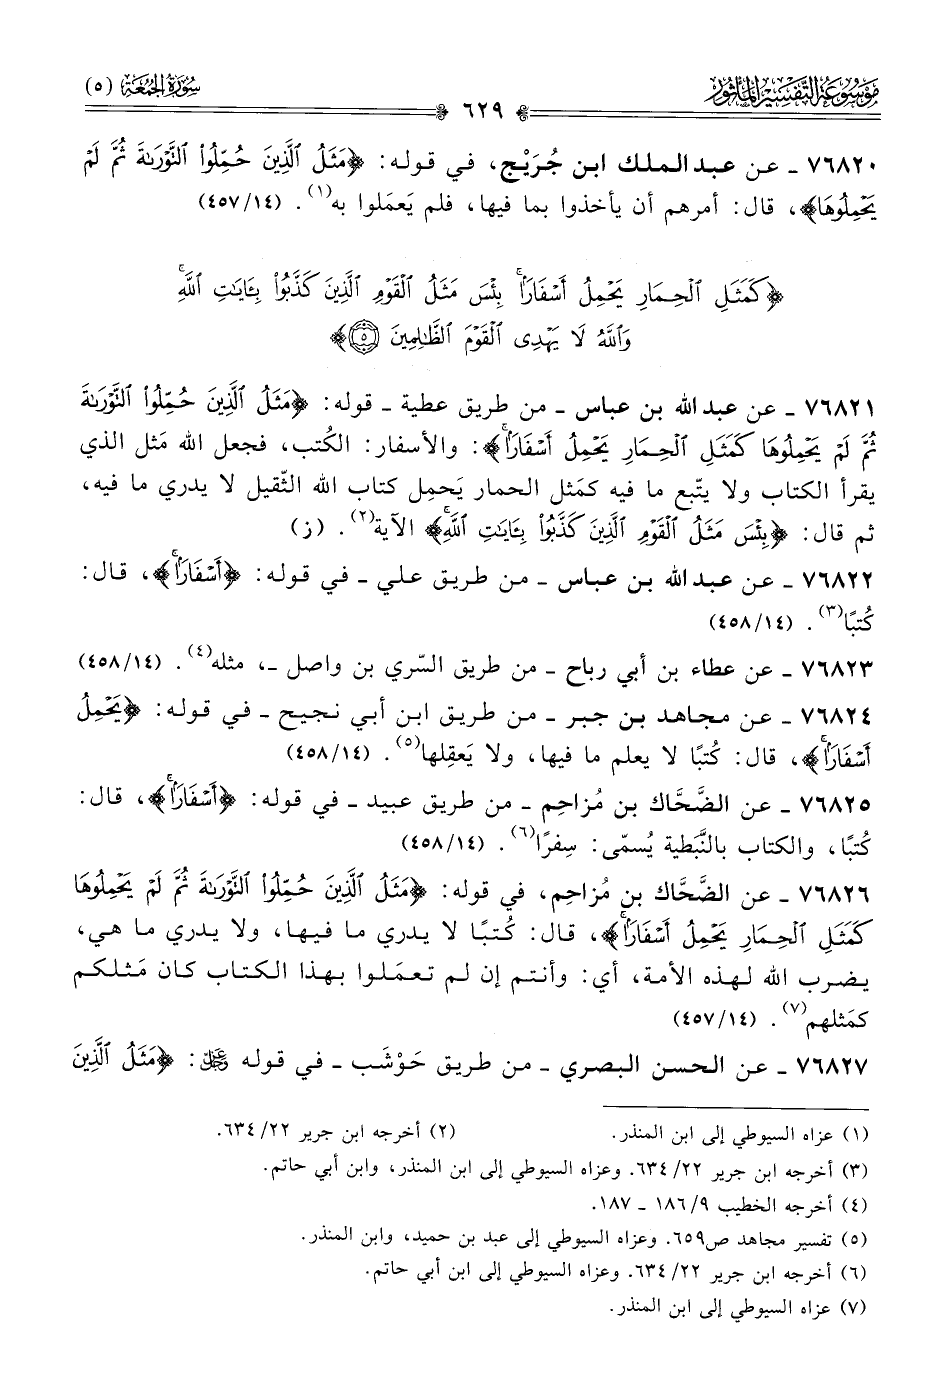 مَوْسُوعَة التَّفْسِير المَأْثُور
سُورَةُ الجُمُعَة (٥)
٦٢٩
٧٦٨٢٠ ـ عن عبد الملك ابن جُرَيْج، في قوله: ﴿مَثَلُ ٱلَّذِينَ حُمِّلُوا۟ ٱلتَّوْرَىٰةَ ثُمَّ لَمْ
يَحْمِلُوهَا﴾، قال: أمرهم أن يأخذوا بما فيها، فلم يَعمَلوا به(١). (٤٥٧/١٤)
﴿كَمَثَلِ ٱلْحِمَارِ يَحْمِلُ أَسْفَارًۢا ۚ بِئْسَ مَثَلُ ٱلْقَوْمِ ٱلَّذِينَ كَذَّبُوا۟ بِـَٔايَـٰتِ ٱللَّهِ ۚ
وَٱللَّهُ لَا يَهْدِى ٱلْقَوْمَ ٱلظَّـٰلِمِينَ ٥﴾
٧٦٨٢١ ـ عن عبد الله بن عباس ـ من طريق عطية ـ قوله: ﴿مَثَلُ ٱلَّذِينَ حُمِّلُوا۟ ٱلتَّوْرَىٰةَ
ثُمَّ لَمْ يَحْمِلُوهَا كَمَثَلِ ٱلْحِمَارِ يَحْمِلُ أَسْفَارًۢا ۚ﴾: والأسفار: الكُتب، فجعل الله مَثل الذي
يقرأ الكتاب ولا يتّبع ما فيه كمَثل الحمار يَحمِل كتاب الله الثّقيل لا يدري ما فيه،
ثم قال: ﴿بِئْسَ مَثَلُ ٱلْقَوْمِ ٱلَّذِينَ كَذَّبُوا۟ بِـَٔايَـٰتِ ٱللَّهِ ۚ﴾ الآية(٢). (ز)
٧٦٨٢٢ ـ عن عبد الله بن عباس ـ من طريق علي ـ في قوله: ﴿أَسْفَارًۢا ۚ﴾، قال:
كُتبًا(٣). (٤٥٨/١٤)
٧٦٨٢٣ ـ عن عطاء بن أبي رباح ـ من طريق السّري بن واصل ـ، مثله(٤). (٤٥٨/١٤)
٧٦٨٢٤ ـ عن مجاهد بن جبر ـ من طريق ابن أبي نجيح ـ في قوله: ﴿يَحْمِلُ
أَسْفَارًۢا ۚ﴾، قال: كُتبًا لا يعلم ما فيها، ولا يَعقِلها(٥). (٤٥٨/١٤)
٧٦٨٢٥ ـ عن الضَّحَّاك بن مُزاحِم ـ من طريق عبيد ـ في قوله: ﴿أَسْفَارًۢا ۚ﴾، قال:
كُتبًا، والكتاب بالنَّبَطية يُسمّى: سِفرًا(٦). (٤٥٨/١٤)
٧٦٨٢٦ ـ عن الضَّحَّاك بن مُزاحِم، في قوله: ﴿مَثَلُ ٱلَّذِينَ حُمِّلُوا۟ ٱلتَّوْرَىٰةَ ثُمَّ لَمْ يَحْمِلُوهَا
كَمَثَلِ ٱلْحِمَارِ يَحْمِلُ أَسْفَارًۢا ۚ﴾، قال: كُتبًا لا يدري ما فيها، ولا يدري ما هي،
يضرب الله لهذه الأمة، أي: وأنتم إن لم تعمَلوا بهذا الكتاب كان مَثلكم
كمَثلهم(٧). (٤٥٧/١٤)
٧٦٨٢٧ ـ عن الحسن البصري ـ من طريق حَوْشَب ـ في قوله ﷿: ﴿مَثَلُ ٱلَّذِينَ
(١) عزاه السيوطي إلى ابن المنذر. (٢) أخرجه ابن جرير ٢٢/ ٦٣٤.
(٣) أخرجه ابن جرير ٢٢/ ٦٣٤. وعزاه السيوطي إلى ابن المنذر، وابن أبي حاتم.
(٤) أخرجه الخطيب ٩/ ١٨٦ ـ ١٨٧.
(٥) تفسير مجاهد ص٦٥٩. وعزاه السيوطي إلى عبد بن حميد، وابن المنذر.
(٦) أخرجه ابن جرير ٢٢/ ٦٣٤. وعزاه السيوطي إلى ابن أبي حاتم.
(٧) عزاه السيوطي إلى ابن المنذر.